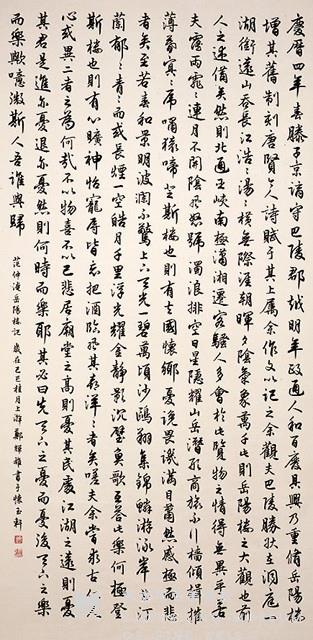 慶曆四年春滕子京謫守巴陵郡越明年政通人和百廢具興乃重脩岳陽樓
增其舊制刻唐賢今人詩賦于其上屬余作文以記之余觀夫巴陵勝狀在洞庭一
湖銜遠山吞長江浩浩湯湯橫無際涯朝暉夕陰氣象萬千此則岳陽樓之大觀也前
人之述備矣然則北通巫峽南極瀟湘遷客騷人多會於此覽物之情得無異乎若
夫霪雨霏霏連月不開陰風怒號濁浪排空日星隱耀山岳潛形商旅不行檣傾楫摧
薄暮冥冥虎嘯猿啼登斯樓也則有去國懷鄉憂讒畏譏滿目蕭然感極而悲
者矣至若春和景明波瀾不驚上下天光一碧萬頃沙鷗翔集錦鱗游泳岸芷汀
蘭郁郁青青而或長煙一空皓月千里浮光耀金靜影沉璧漁歌互答此樂何極登
斯樓也則有心曠神怡寵辱皆忘把酒臨風其喜洋洋者矣嗟夫余嘗求古仁人之
心或異二者之為何哉不以物喜不以己悲居廟堂之高則憂其民處江湖之遠則憂
其君是進亦憂退亦憂然則何時而樂耶其必曰先天下之憂而憂後天下之樂
而樂歟噫微斯人吾誰與歸
范仲淹岳陽樓記 歲在己巳桂月上澣 鄭輝雄書于懷玉軒